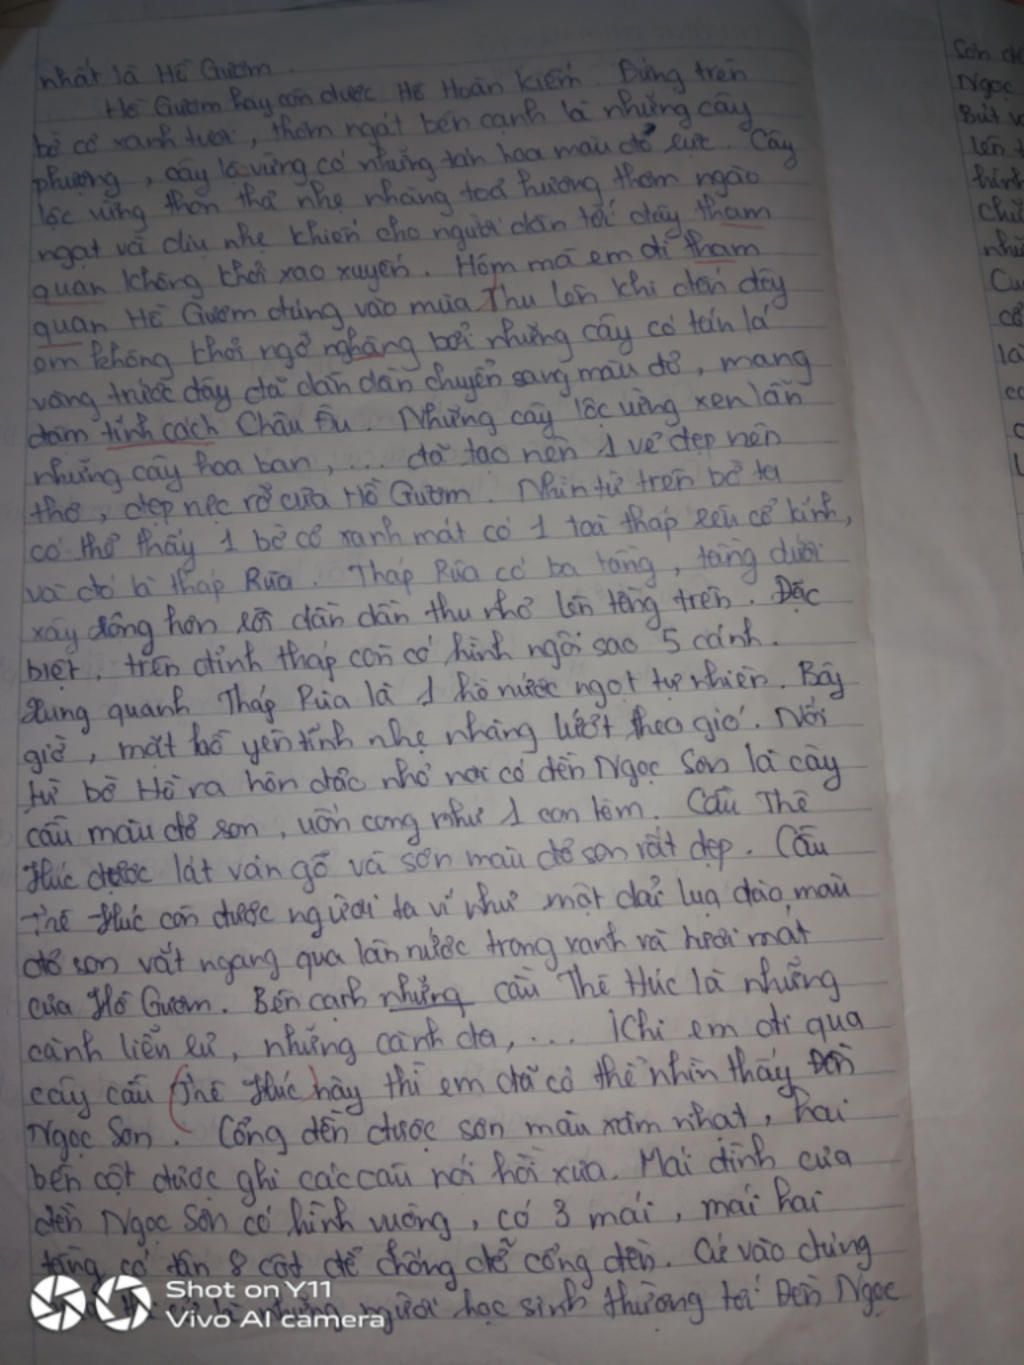 nhất là Hồ Gươm.
Hồ Gươm hay còn được Hồ Hoàn Kiếm. Đứng trên
bờ cỏ xanh tươi, thơm ngát bên cạnh là những cây
phượng, cây lộc vừng có những tán hoa màu đỏ rực. Cây
lộc vừng thon thả nhẹ nhàng toả hương thơm ngào
ngạt và dịu nhẹ khiến cho người dân tới đây tham
quan không khỏi xao xuyến. Hôm mà em đi tham
quan Hồ Gươm đúng vào mùa Thu lên khi đến đây
em không khỏi ngỡ nghàng bởi những cây có tán lá
vàng trước đây đã dần dần chuyển sang màu đỏ, mang
đậm tính cách Châu Âu. Những cây lộc vừng xen lẫn
những cây hoa ban, ... đã tạo nên 1 vẻ đẹp nên
thơ, đẹp rực rỡ của Hồ Gươm. Nhìn từ trên bờ ta
có thể thấy 1 bờ cỏ xanh mát có 1 toà tháp rêu cổ kính,
và đó là tháp Rùa. Tháp Rùa có ba tầng, tầng dưới
xây rộng hơn rồi dần dần thu nhỏ lên tầng trên. Đặc
biệt, trên đỉnh tháp còn có hình ngôi sao 5 cánh.
Xung quanh Tháp Rùa là 1 hồ nước ngọt tự nhiên. Bây
giờ, mặt hồ yên tĩnh nhẹ nhàng lướt theo gió. Nối
từ bờ Hồ ra hòn đảo nhỏ nơi có đền Ngọc Sơn là cây
cầu màu đỏ son, uốn cong như 1 con tôm. Cầu Thê
Húc được lát ván gỗ và sơn màu đỏ son rất đẹp. Cầu
Thê Húc còn được người ta ví như một dải lụa đào, màu
đỏ son vắt ngang qua làn nước trong xanh và tươi mát
của Hồ Gươm. Bên cạnh những cầu Thê Húc là những
cành liễu rủ, những cành đa, ... Khi em đi qua
cây cầu Thê Húc này thì em đã có thể nhìn thấy Đền
Ngọc Sơn. Cổng đền được sơn màu xám nhạt, hai
bên cột được ghi các câu nói hồi xưa. Mái đình của
đền Ngọc Sơn có hình vuông, có 3 mái, mái hai
tầng có tận 8 cột để chống đỡ cổng đền. Cứ vào đúng
những người học sinh thường tới Đền Ngọc
Sơn
Ngọc
Bút
lên
hình
Shot on Y11
Vivo AI camera